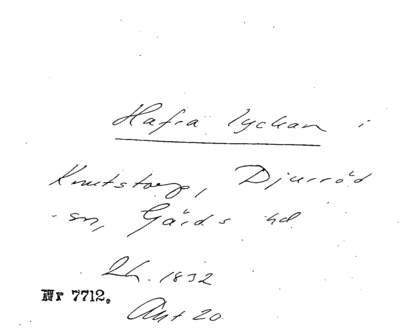 Hafra lyckan i
Knutstorp, Djurröd
sn, Gärds hd.
Lh. 1832
Nr 7712.
Akt 20